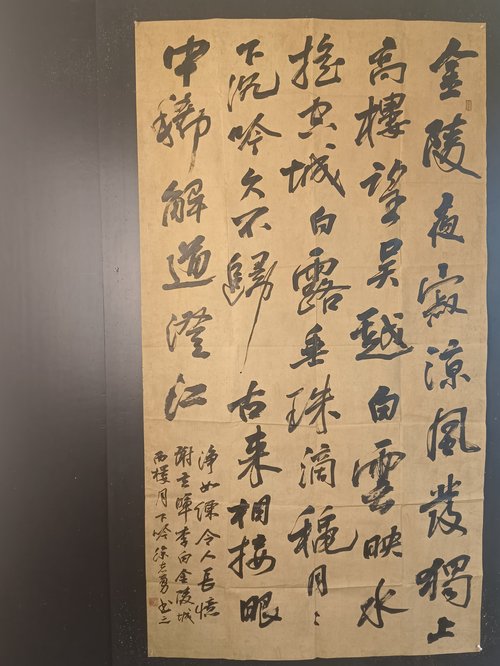 金陵夜寂涼風發獨上
高樓望吳越白雲映水
搖空城白露垂珠滴穐月〻
下沉吟久不歸古来相接眼
中稀解道澄江
淨如練令人長憶
謝玄暉李白金陵城
西樓月下吟徐志勇书之